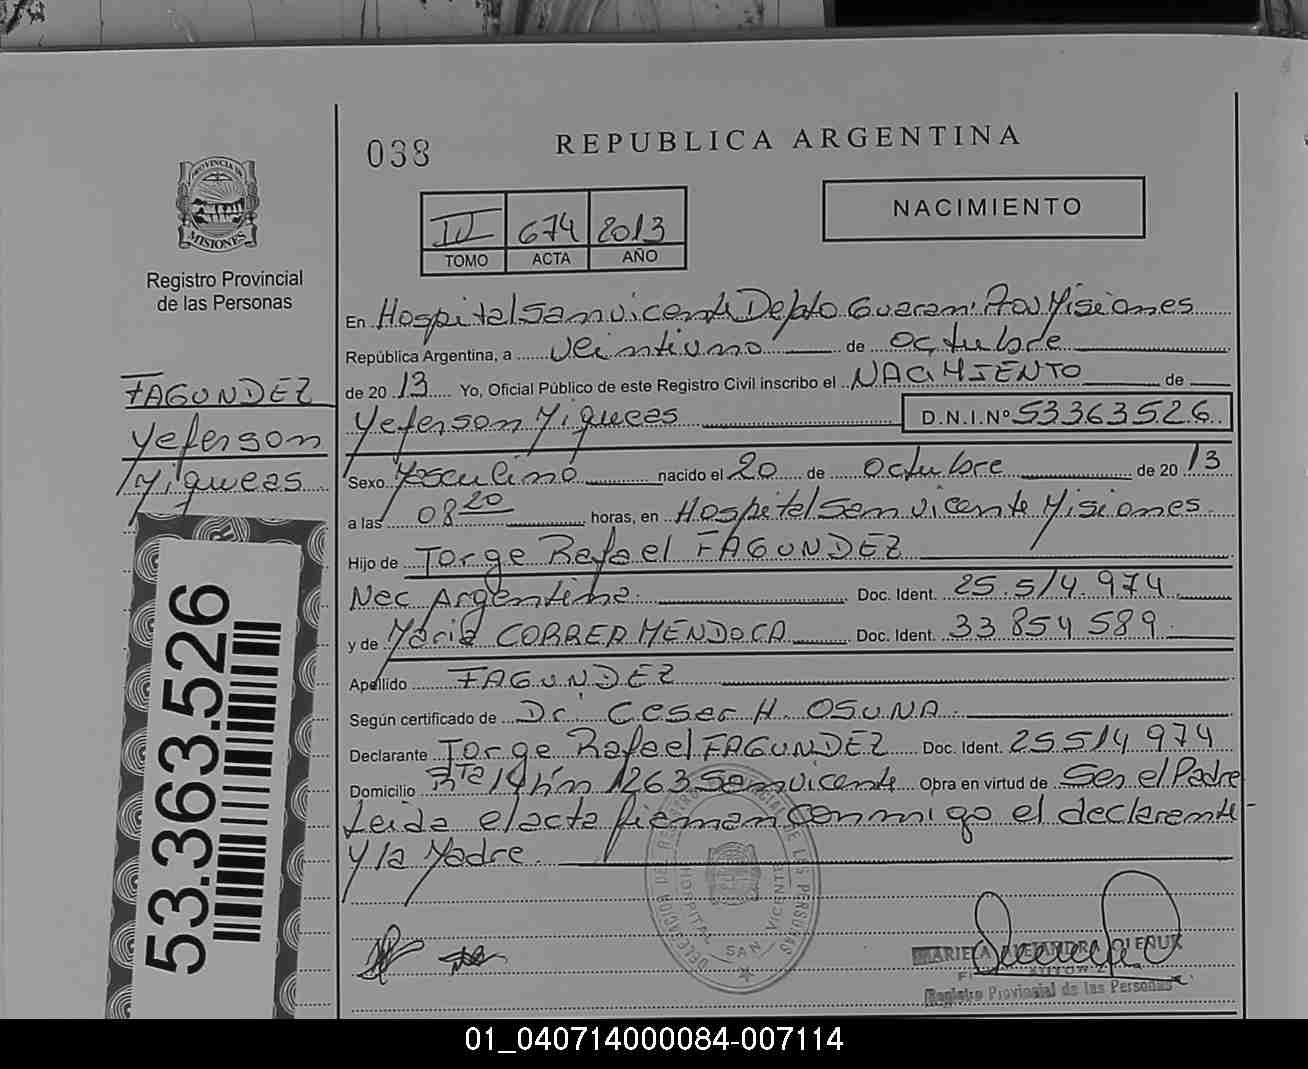 038
REPUBLICA ARGENTINA
NACIMIENTO
III 674 2013
TOMO ACTA AÑO
PROVINCIA DE
MISIONES
Registro Provincial
de las Personas
FAGUNDEZ
Yeferson
Miqueas
53.363.526
En Hospital San Vicente Depto Guaraní Prov Misiones
República Argentina, a veintiuno de octubre
de 2013 Yo, Oficial Público de este Registro Civil inscribo el NACIMIENTO de
Yeferson Miqueas D.N.I.Nº 53363526
Sexo Masculino nacido el 20 de octubre de 2013
a las 08 20 horas, en Hospital San Vicente Misiones
Hijo de Jorge Rafael FAGUNDEZ
Nac Argentina. Doc. Ident. 25.514.974
y de Maria CORRER MENDOCA Doc. Ident. 33 854 589
Apellido FAGUNDEZ
Según certificado de Dr. Cesar H. OSUNA.
Declarante Jorge Rafael FAGUNDEZ Doc. Ident. 25514974
Domicilio Rta 14 km 1263 San Vicente Obra en virtud de Ser el Padre
Leida el acta firman conmigo el declarante
y la Madre.
HOSPITAL SAN VICENTE
MARIELA ALEJANDRA
Registro Provincial de las Personas
01_040714000084-007114